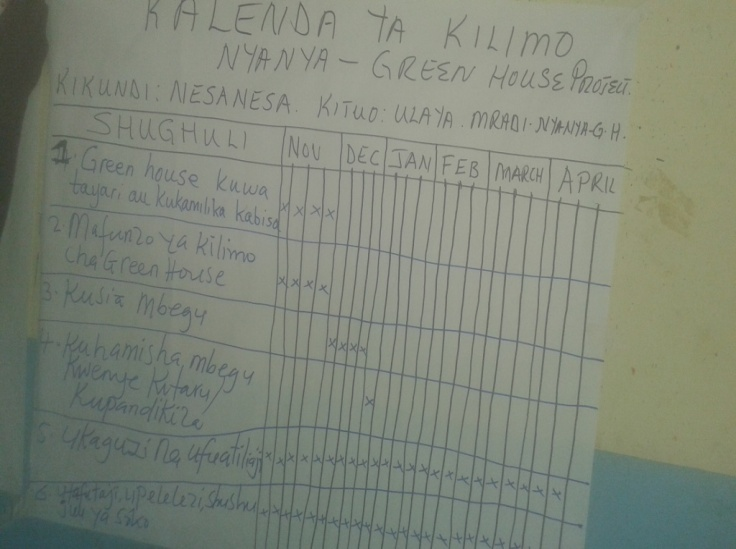 KALENDA YA KILIMO
NYANYA - GREEN HOUSE PROTECT.
KIKUNDI: NESANESA. KITUO: ULAYA. MRADI-NYANYA-G.H.
SHUGHULI NOV DEC JAN FEB MARCH APRIL
1. Green house kuwa
tayari au kukamilika kabisa x x x x
2. Mafunzo ya kilimo
cha Green House x x x x
3. Kusia Mbegu x x x x
4. Kuhamisha mbegu
kwenye kitaru/
kupandikiza x
5. Ukaguzi na ufuatiliaji x x x x x x x x x x x x x x x x x x x x x x x x
6. upelelezi, shushu
juu ya soko